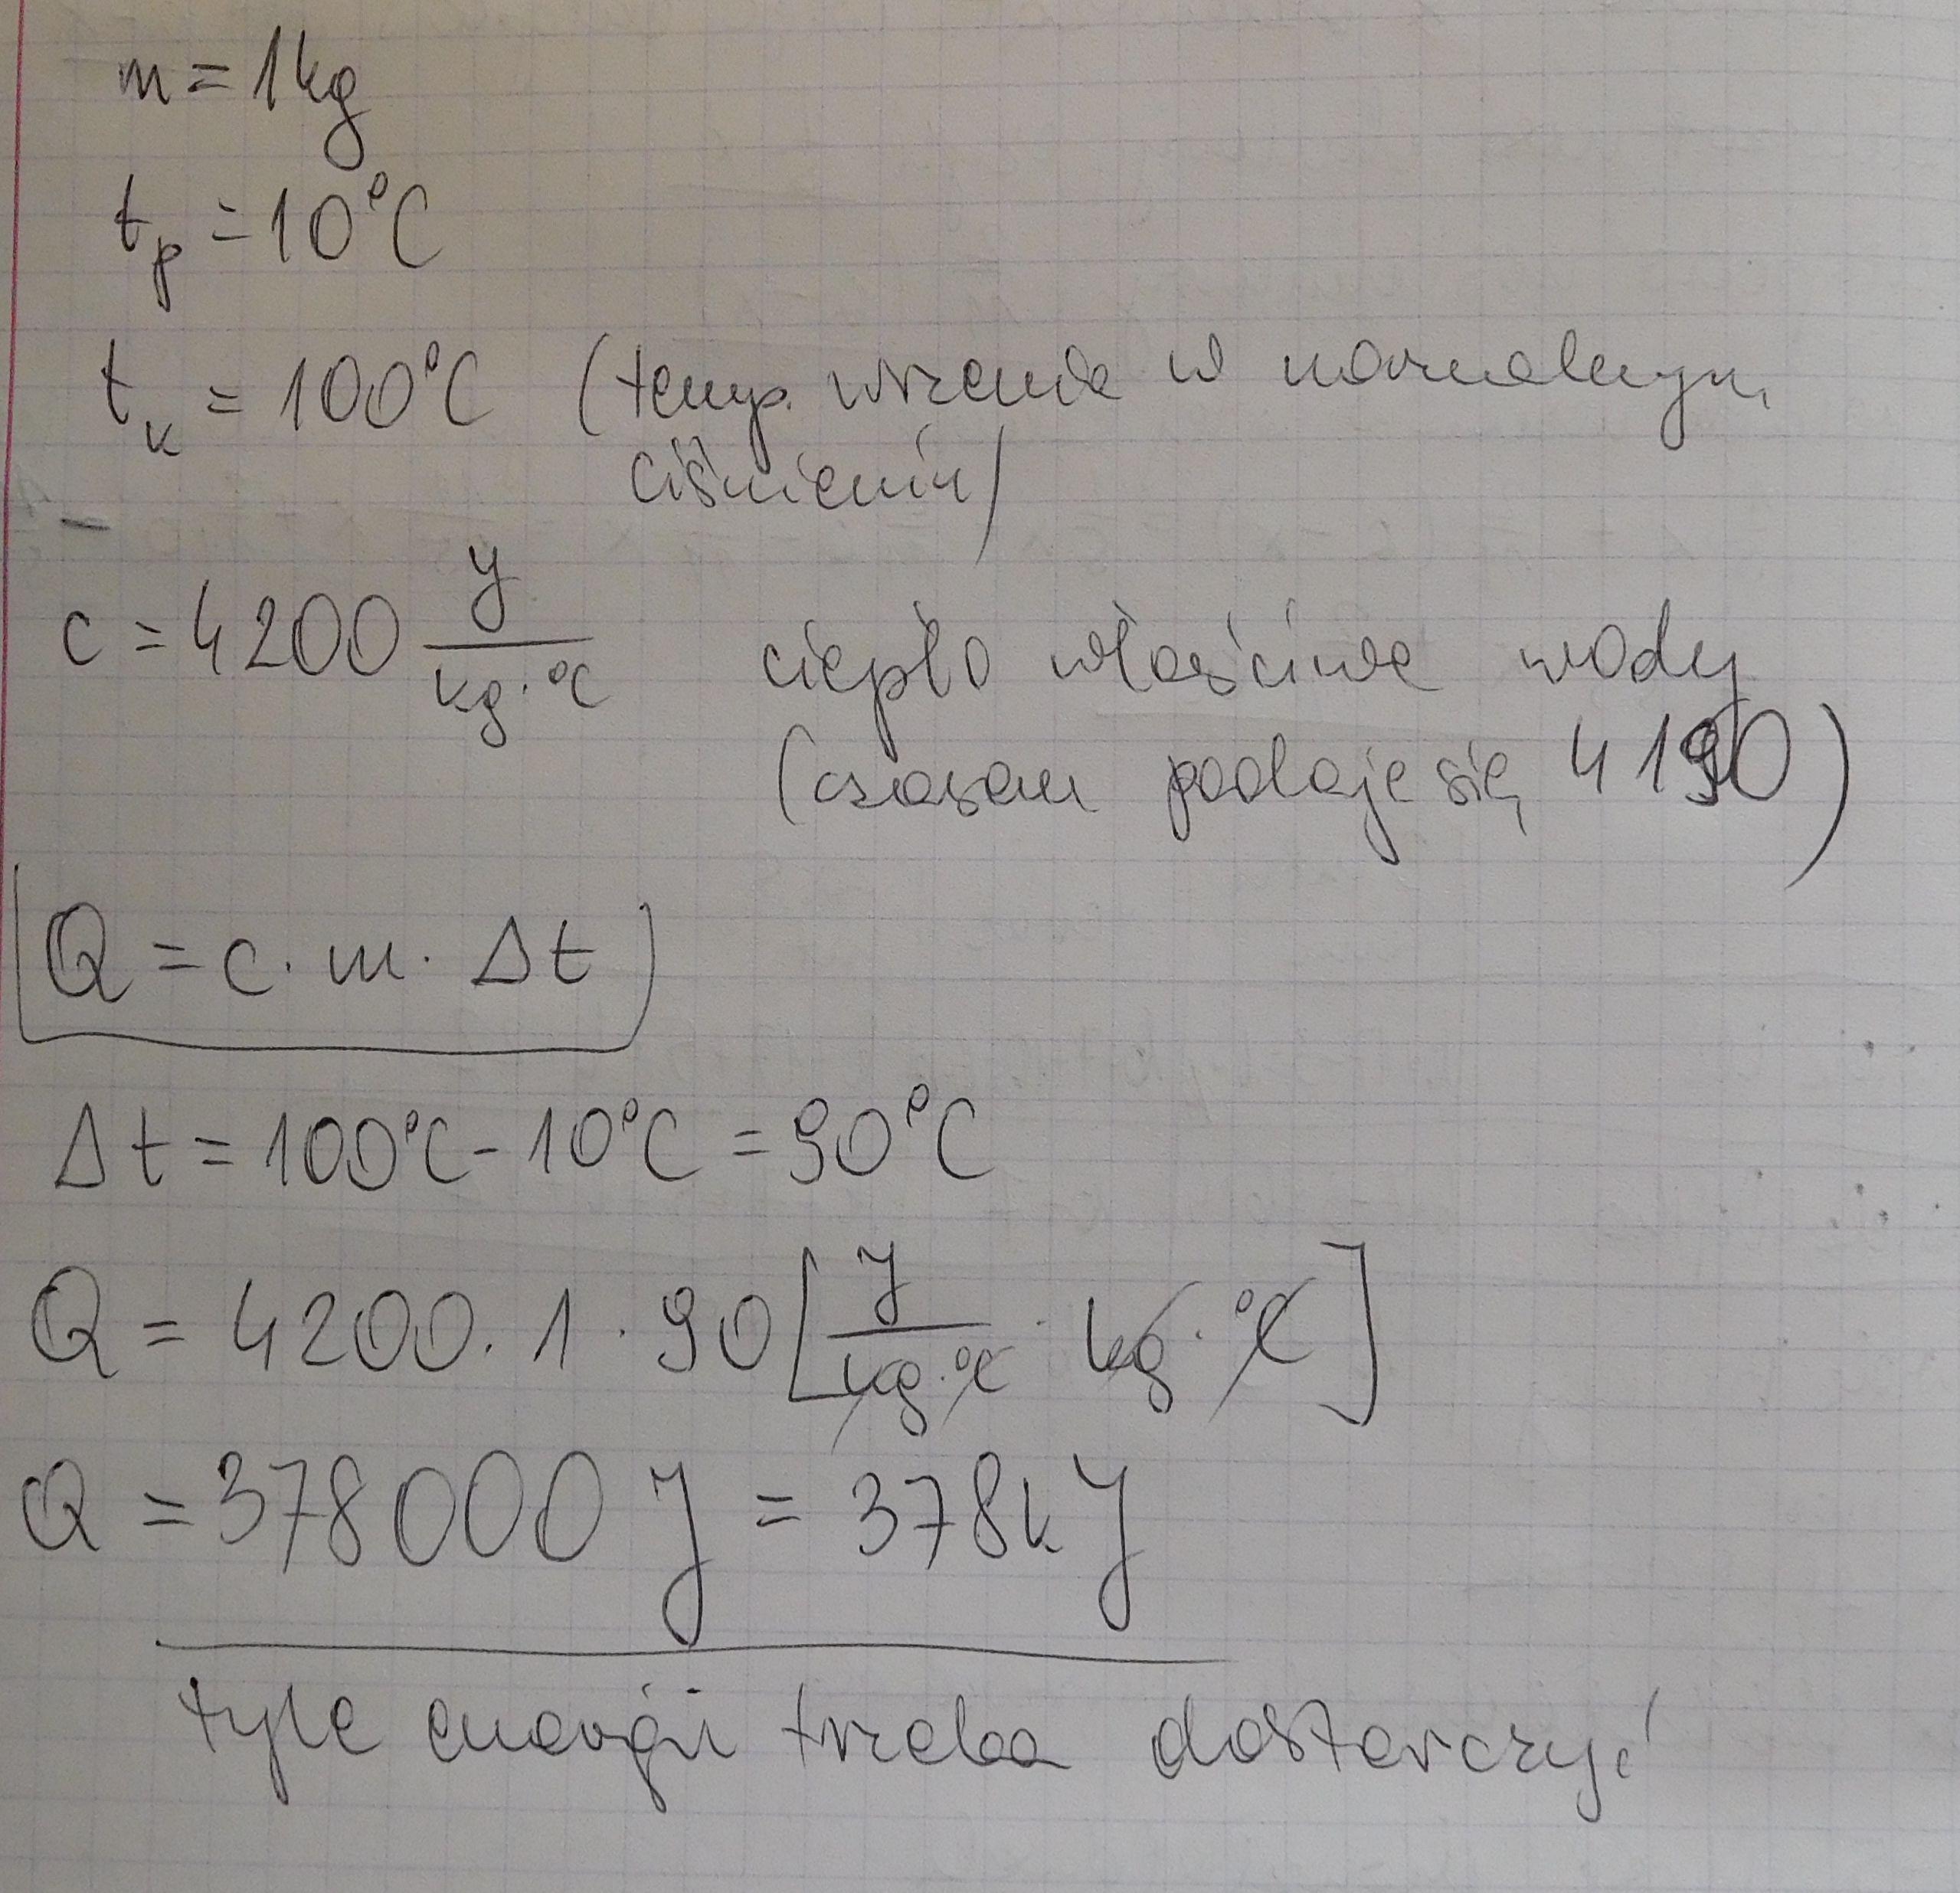 m = 1kg
t_p = 10°C
t_k = 100°C (temp. wrzenia w normalnym
ciśnieniu)
c = 4200 J/(kg·°C) ciepło właściwe wody
(czasem podaje się 4190)
Q = c · m · Δt
Δt = 100°C - 10°C = 90°C
Q = 4200 · 1 · 90 [J/(kg·°C) · kg · °C]
Q = 378000 J = 378kJ
tyle energii trzeba dostarczyć